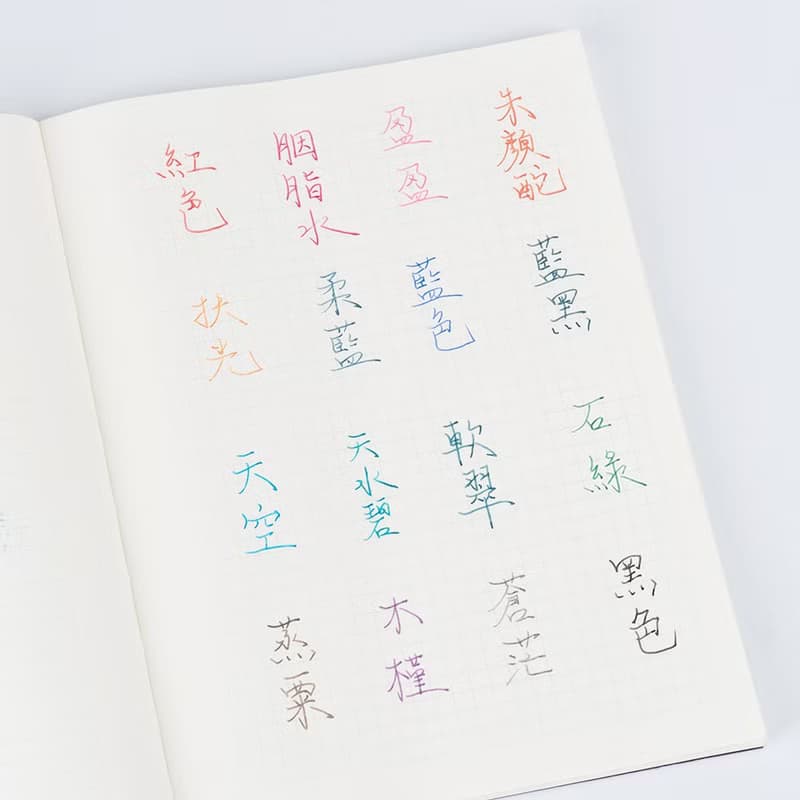 紅色
胭脂水
盈盈
朱顏酡
扶光
柔藍
藍色
藍黑
天空
天水碧
軟翠
石綠
蒸粟
木槿
蒼茫
黑色